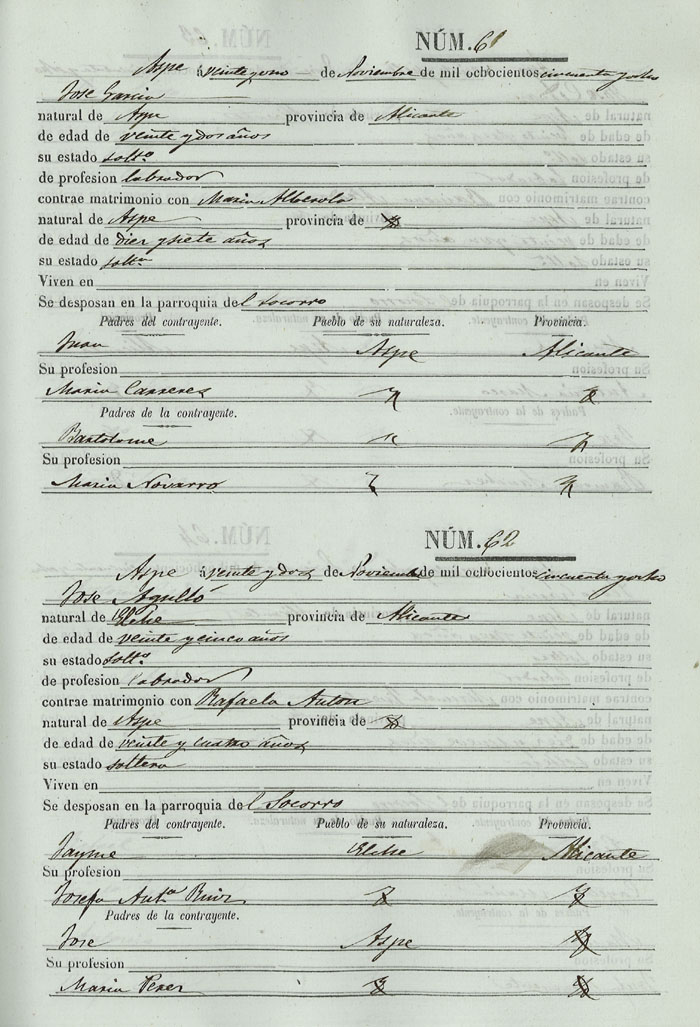 NÚM. 61
Aspe á veinte y uno de Noviembre de mil ochocientos cincuenta y ocho
Jose Garcia
natural de Aspe provincia de Alicante
de edad de veinte y dos años
su estado soltº
de profesion labrador
contrae matrimonio con Maria Alberola
natural de Aspe provincia de
de edad de diez y siete años
su estado soltª
Viven en
Se desposan en la parroquia del Socorro
Padres del contrayente. Pueblo de su naturaleza. Provincia.
Juan Aspe Alicante
Su profesion
Maria Carreres
Padres de la contrayente.
Bartolome
Su profesion
Maria Navarro
NÚM. 62
Aspe á veinte y dos de Noviembre de mil ochocientos cincuenta y ocho
Jose Agulló
natural de Elche provincia de Alicante
de edad de veinte y cinco años
su estado soltº
de profesion labrador
contrae matrimonio con Rafaela Anton
natural de Aspe provincia de
de edad de veinte y cuatro años
su estado soltera
Viven en
Se desposan en la parroquia del Socorro
Padres del contrayente. Pueblo de su naturaleza. Provincia.
Jayme Elche Alicante
Su profesion
Josefa Antª Ruiz
Padres de la contrayente.
Jose Aspe
Su profesion
Maria Perez